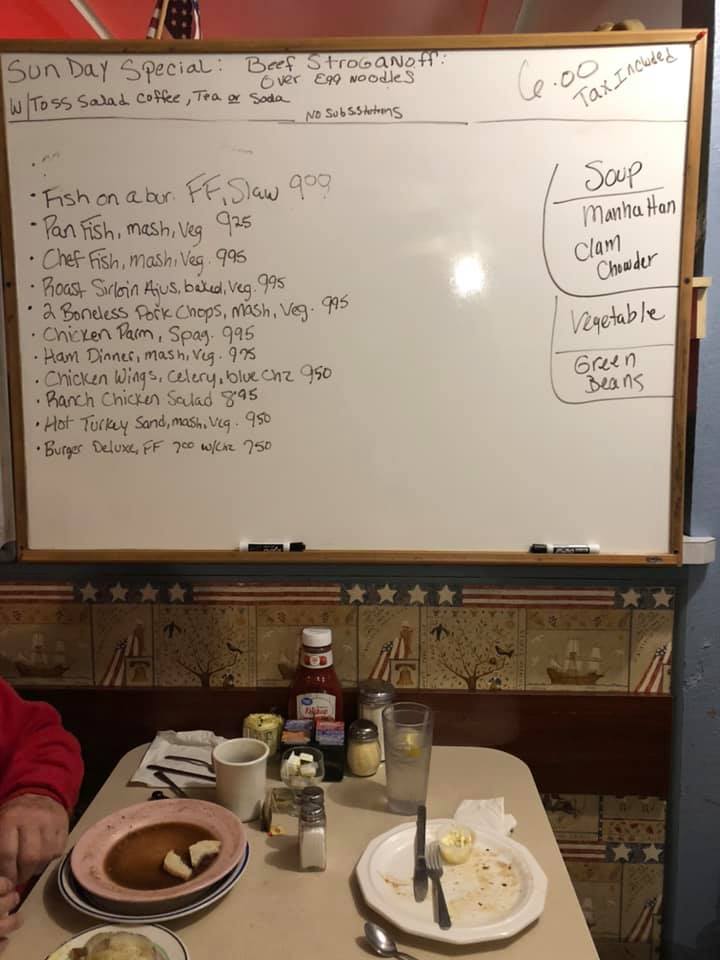 Sunday Special: Beef Stroganoff:
Over Egg Noodles
W/Toss Salad Coffee, Tea or Soda
No Subsstitutions
6.00
Tax Included
• Fish on a bun. FF, Slaw 900
• Pan Fish, mash, Veg 925
• Chef Fish, mash, Veg. 995
• Roast Sirloin Ajus, baked, veg. 995
• 2 Boneless Pork Chops, mash, Veg. 995
• Chicken Parm, Spag. 995
• Ham Dinner, mash, Veg. 975
• Chicken Wings, Celery, blue Chz 950
• Ranch Chicken Salad 895
• Hot Turkey Sand, mash, Veg. 950
• Burger Deluxe, FF 700 w/chz 750
Soup
Manhattan
Clam
Chowder
Vegetable
Green
Beans
Ketchup